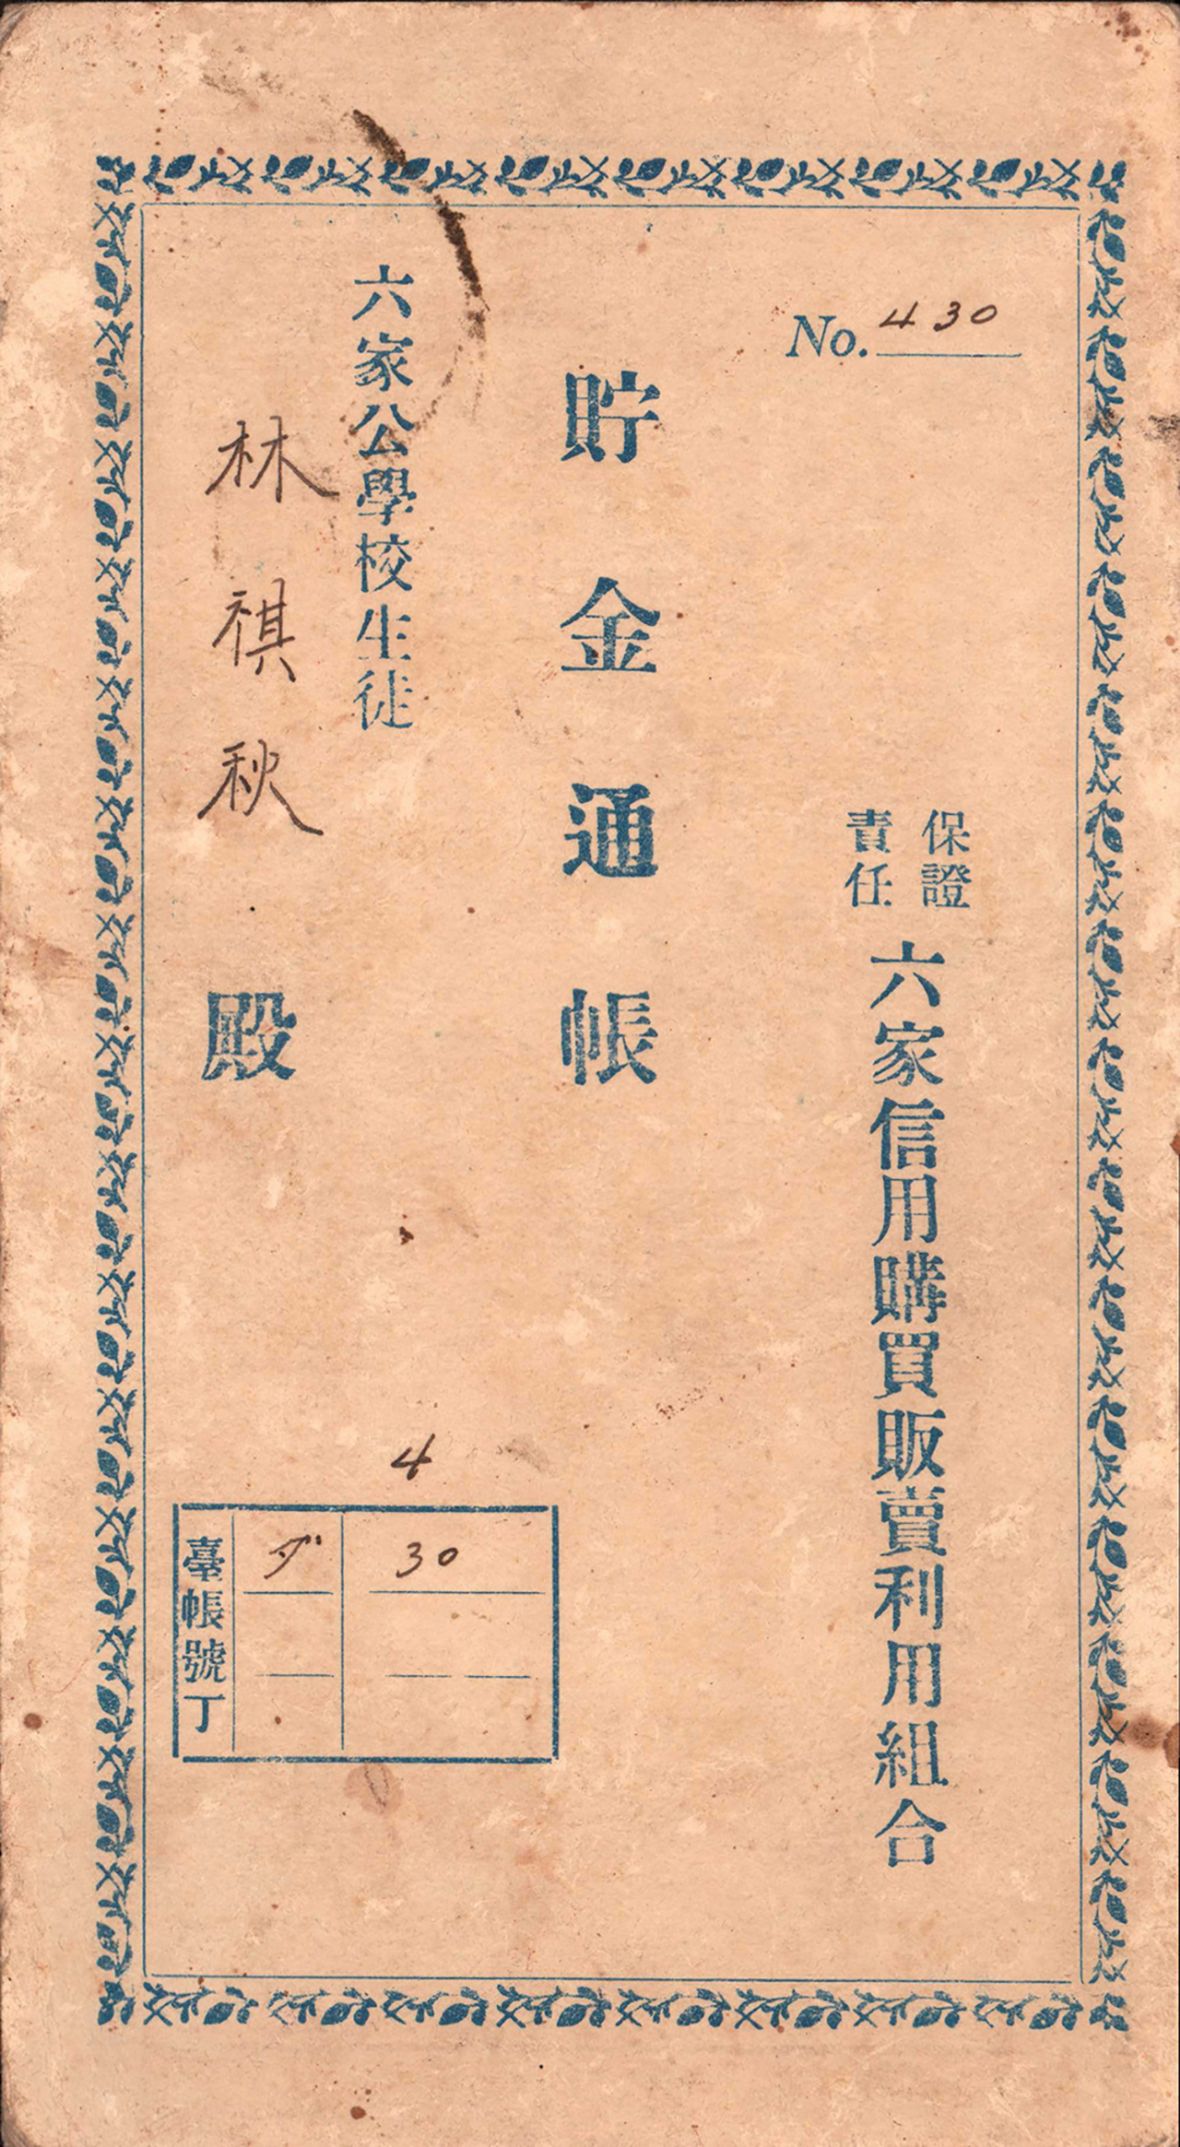 No. 430
保證
責任
六家信用購買販賣利用組合
貯金通帳
六家公學校生徒
林祺秋殿
4
臺帳號丁
ダ 30